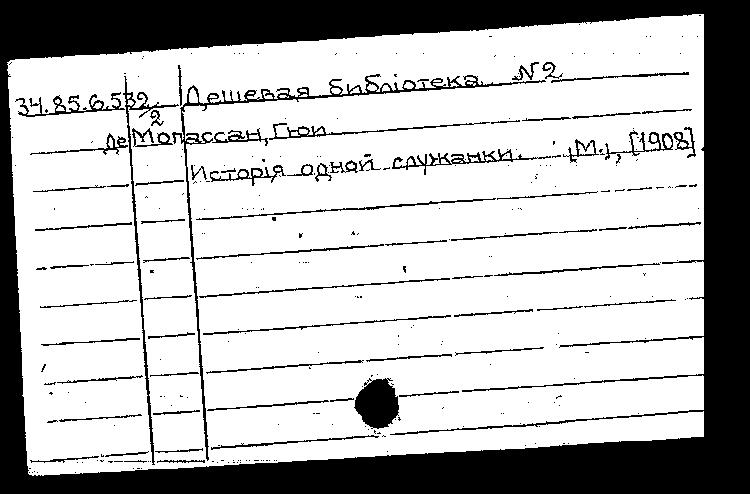 34.85.6.532. Дешевая библіотека N2
2
де Мопассан, Гюи
Исторія одной служанки. [М.], [1908].